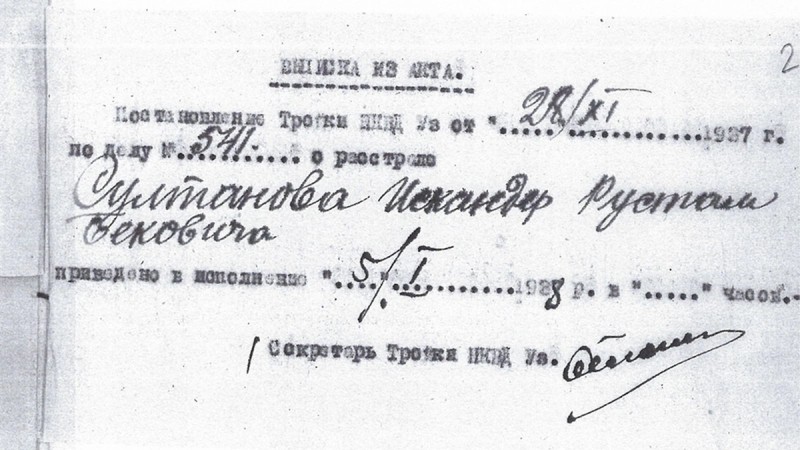 2
ВЫПИСКА ИЗ АКТА.
Постановление Тройки НКВД Уз от "..28/XI..........1937 г.
по делу №..541....... о расстреле
Султанова Искандер Рустам
бековича
приведено в исполнение "..5./.I.........1938 г. в "....." часов.-
Секретарь Тройки НКВД Уз.